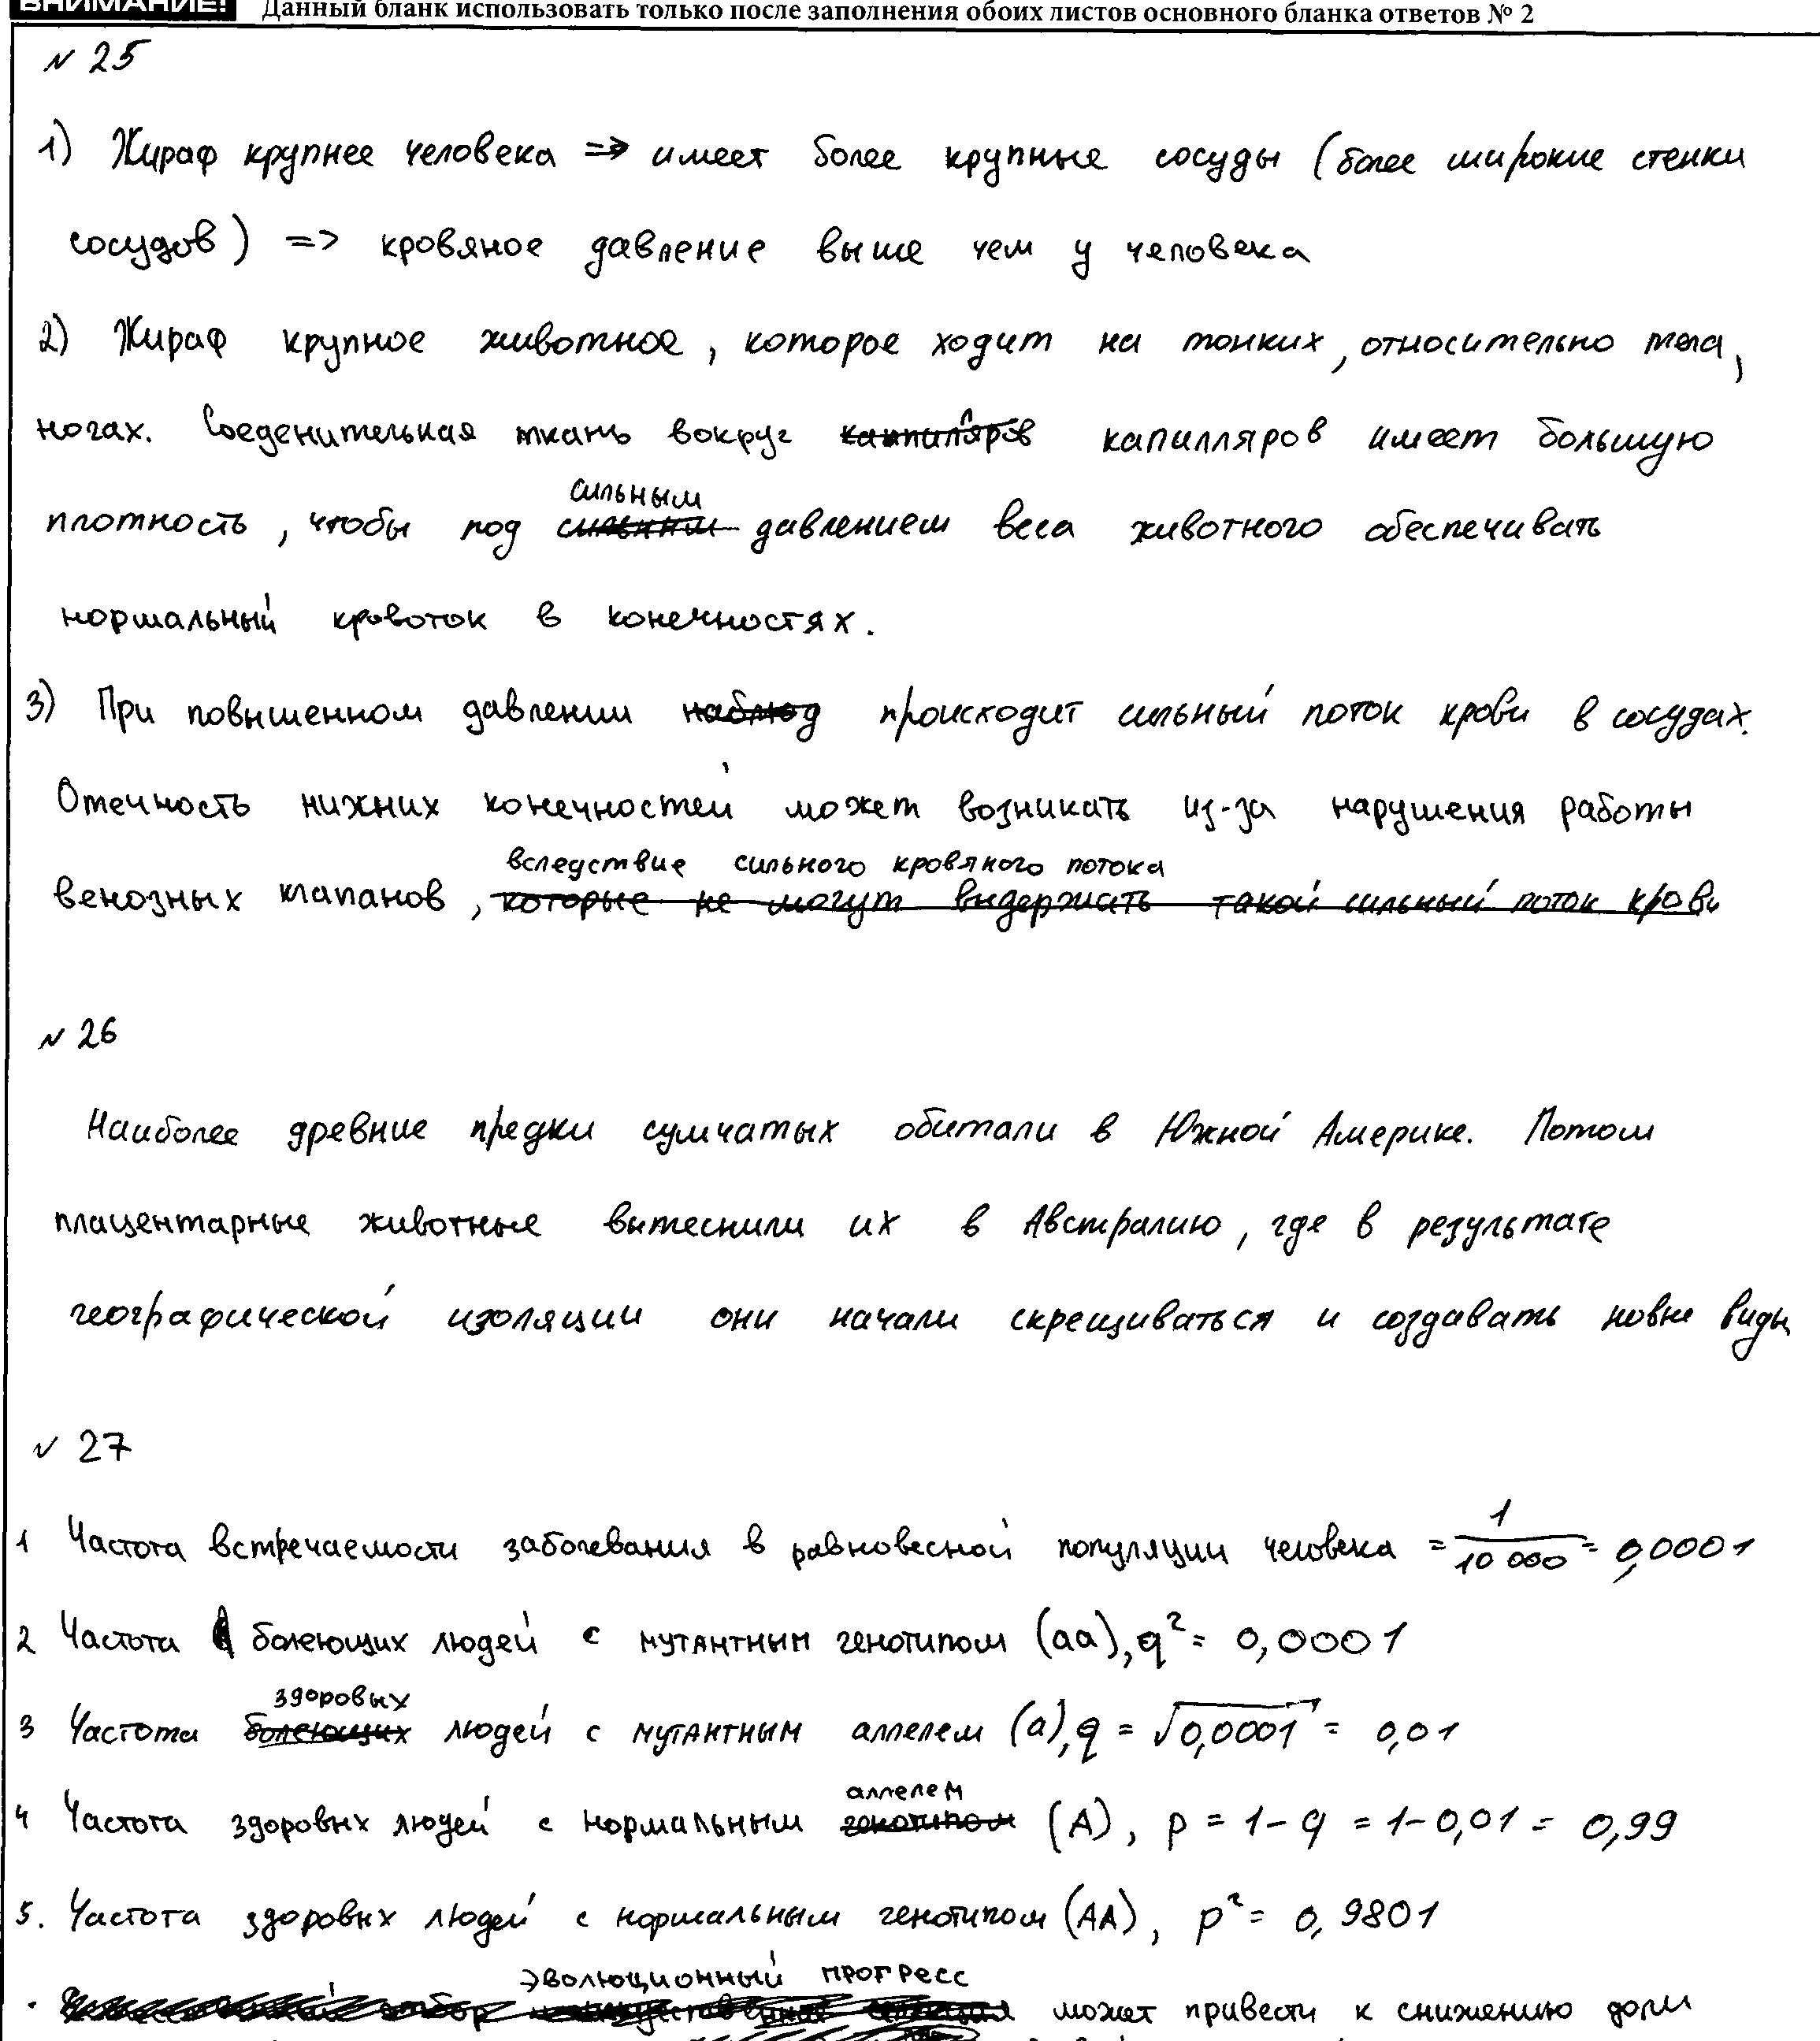 ВНИМАНИЕ! Данный бланк использовать только после заполнения обоих листов основного бланка ответов № 2
№ 25
1) Жираф крупнее человека => имеет более крупные сосуды (более широкие стенки
сосудов) => кровяное давление выше чем у человека
2) Жираф крупное животное, которое ходит на тонких, относительно тела,
ногах. Соеденительная ткань вокруг каппиляров капилляров имеет большую
сильным
плотность, чтобы под сильным давлением веса животного обеспечивать
нормальный кровоток в конечностях.
3) При повышенном давлении наблюд происходит сильный поток крови в сосудах.
Отечность нижних конечностей может возникать из-за нарушения работы
вследствие сильного кровяного потока
венозных клапанов, которые не могут выдержать такой сильный поток крови
№ 26
Наиболее древние предки сумчатых обитали в Южной Америке. Потом
плацентарные животные вытеснили их в Австралию, где в результате
географической изоляции они начали скрещиваться и создавать новые виды
№ 27
1 Частота встречаемости заболевания в равновесной популяции человека = 1/10 000 = 0,0001
2 Частота болеющих людей с мутантным генотипом (аа), q² = 0,0001
здоровых
3 Частота болеющих людей с мутантным аллелем (а), q = √0,0001 = 0,01
аллелем
4 Частота здоровых людей с нормальным генотипом (А), p = 1-q = 1-0,01 = 0,99
5. Частота здоровых людей с нормальным генотипом (АА), p² = 0,9801
эволюционный прогресс
отбор может привести к снижению доли